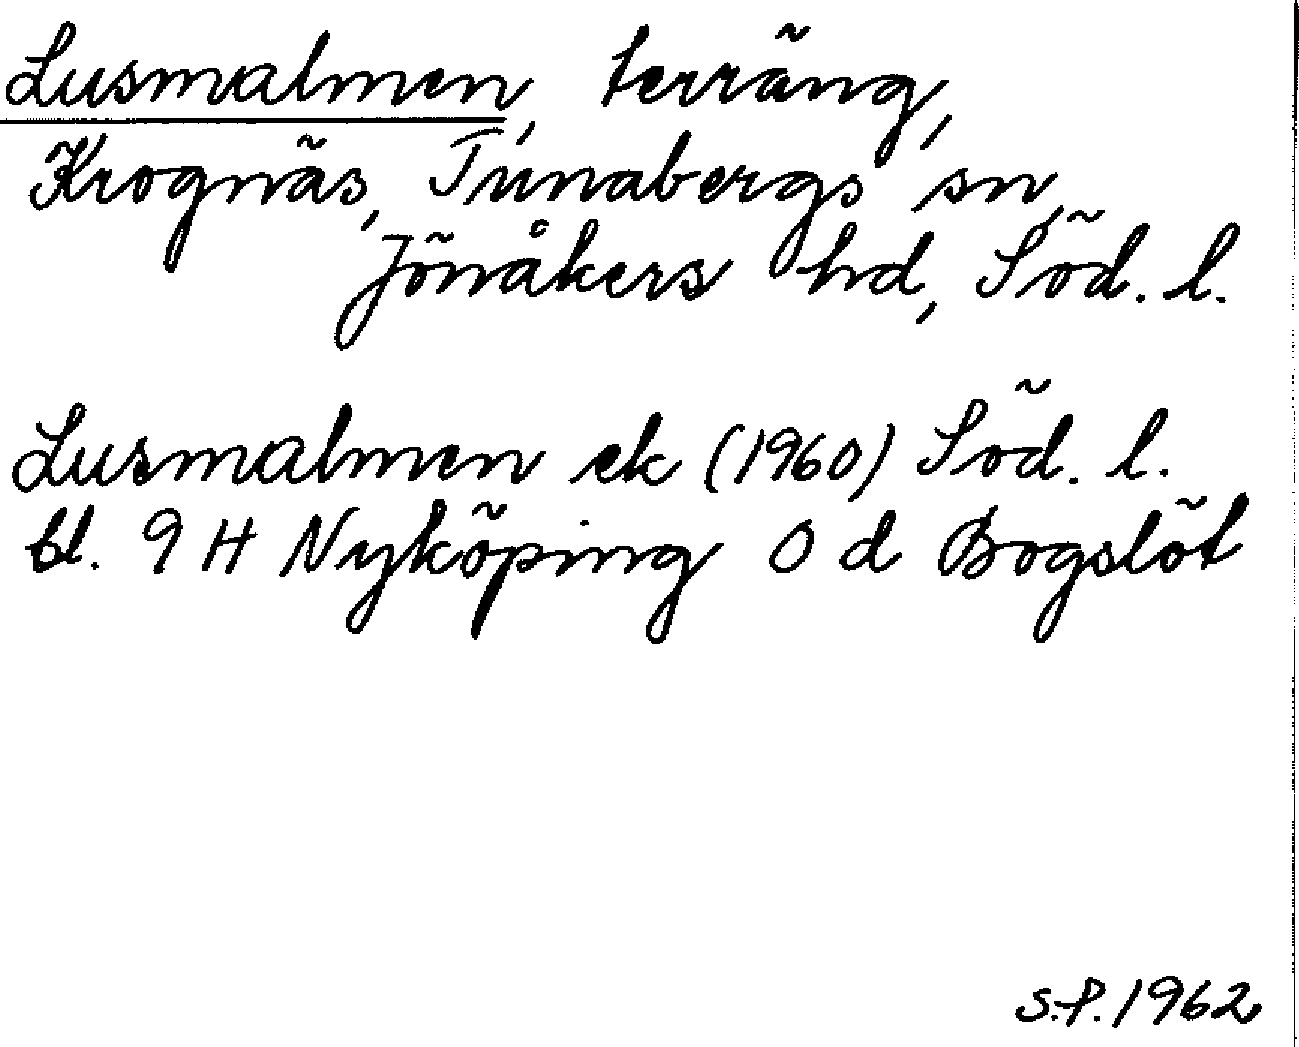 Lusmalmen, terräng,
Krognäs, Tunabergs sn,
Jönåkers hd, Söd. l.
Lusmalmen ek (1960) Söd. l.
bl. 9 H Nyköping O d Bogslöt
S.P. 1962